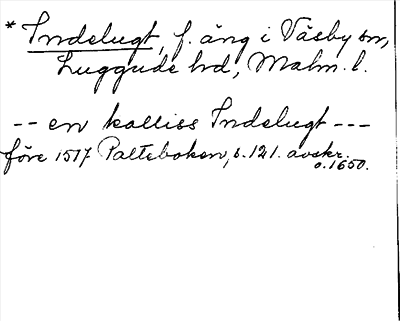 * Indelugt, f. äng i Väsby sn,
Luggude hd, Malm. l.
-- en kalliss Indelugt ---
före 1517 Palteboken, s. 121. avskr.
o. 1650.